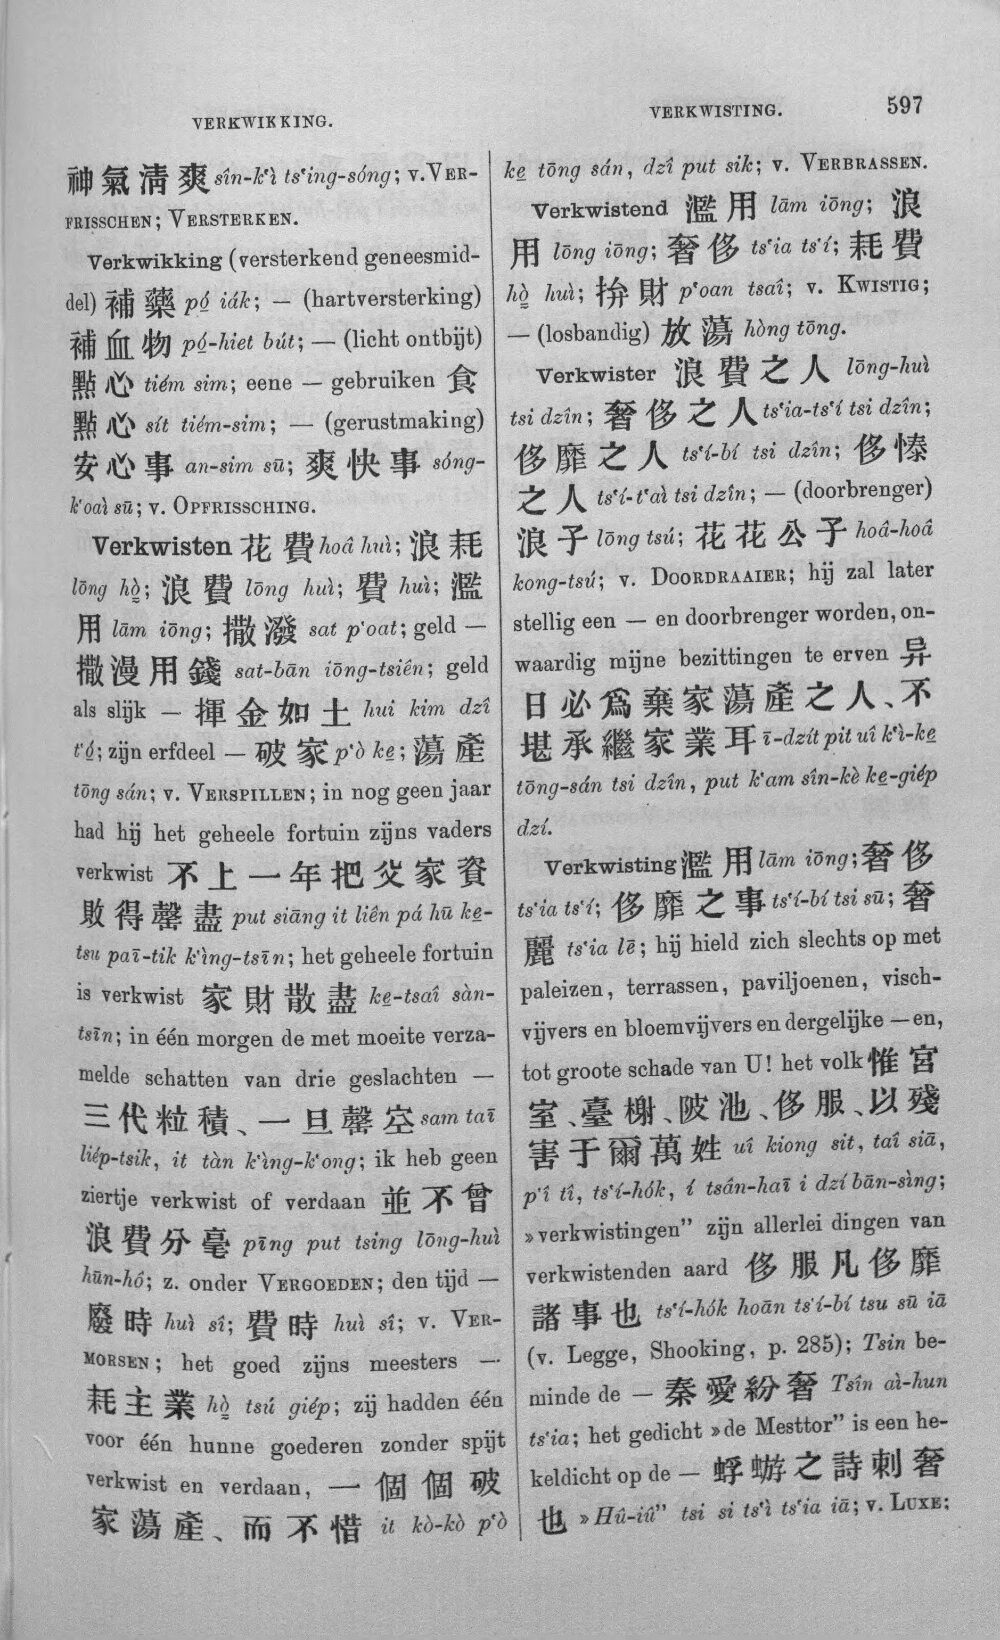 VERKWIKKING.
VERKWISTING.
597
神氣清爽 sîn-k‘ì ts‘ing-sóng; v. VER-
FRISSCHEN; VERSTERKEN.
Verkwikking (versterkend geneesmid-
del) 補藥 pó͘ iák; — (hartversterking)
補血物 pó͘-hiet bút; — (licht ontbijt)
點心 tiém sim; eene — gebruiken 食
點心 sít tiém-sim; — (gerustmaking)
安心事 an-sim sū; 爽快事 sóng-
k‘oaì sū; v. OPFRISSCHING.
Verkwisten 花費 hoâ huì; 浪耗
lōng hò̤; 浪費 lōng huì; 費 huì; 濫
用 lām iōng; 撒潑 sat p‘oat; geld —
撒漫用錢 sat-bān iōng-tsién; geld
als slijk — 揮金如土 hui kim dzî
t‘ó͘; zijn erfdeel — 破家 p‘ò ke̤; 蕩產
tōng sán; v. VERSPILLEN; in nog geen jaar
had hij het geheele fortuin zijns vaders
verkwist 不上一年把父家資
敗得罄盡 put siāng it liên pá hū ke̤-
tsu paī-tik k‘ìng-tsīn; het geheele fortuin
is verkwist 家財散盡 ke̤-tsaî sàn-
tsīn; in één morgen de met moeite verza-
melde schatten van drie geslachten —
三代粒積、一旦罄空 sam taī
liép-tsik, it tàn k‘ìng-k‘ong; ik heb geen
ziertje verkwist of verdaan 並不曾
浪費分毫 pīng put tsing lōng-huì
hūn-hô; z. onder VERGOEDEN; den tijd —
廢時 huì sî; 費時 huì sî; v. VER-
MORSEN; het goed zijns meesters —
耗主業 hò̤ tsú giép; zij hadden één
voor één hunne goederen zonder spijt
verkwist en verdaan, 一個個破
家蕩產、而不惜 it kò-kò p‘ò
ke̤ tōng sán, dzî put sik; v. VERBRASSEN.
Verkwistend 濫用 lām iōng; 浪
用 lōng iōng; 奢侈 ts‘ia ts‘í; 耗費
hò̤ huì; 拚財 p‘oan tsaî; v. KWISTIG;
— (losbandig) 放蕩 hòng tōng.
Verkwister 浪費之人 lōng-huì
tsi dzîn; 奢侈之人 ts‘ia-ts‘í tsi dzîn;
侈靡之人 ts‘í-bí tsi dzîn; 侈愫
之人 ts‘í-t‘aì tsi dzîn; — (doorbrenger)
浪子 lōng tsú; 花花公子 hoâ-hoâ
kong-tsú; v. DOORDRAAIER; hij zal later
stellig een — en doorbrenger worden, on-
waardig mijne bezittingen te erven 异
日必爲棄家蕩產之人、不
堪承繼家業耳 ī-dzít pit uî k‘ì-ke̤
tōng-sán tsi dzîn, put k‘am sîn-kè ke̤-giép
dzí.
Verkwisting 濫用 lām iōng; 奢侈
ts‘ia ts‘í; 侈靡之事 ts‘í-bí tsi sū; 奢
麗 ts‘ia lē; hij hield zich slechts op met
paleizen, terrassen, paviljoenen, visch-
vijvers en bloemvijvers en dergelijke — en,
tot groote schade van U! het volk 惟宮
室、臺榭、陂池、侈服、以殘
害于爾萬姓 uî kiong sit, taî siā,
p‘î tî, ts‘í-hók, í tsân-haī i dzí bān-sìng;
»verkwistingen” zijn allerlei dingen van
verkwistenden aard 侈服凡侈靡
諸事也 ts‘í-hók hoān ts‘í-bí tsu sū iā
(v. Legge, Shooking, p. 285); Tsin be-
minde de — 秦愛紛奢 Tsîn aì-hun
ts‘ia; het gedicht »de Mesttor” is een he-
keldicht op de — 蜉蝣之詩刺奢
也 »Hû-iû” tsi si ts‘ì ts‘ia iā; v. LUXE;